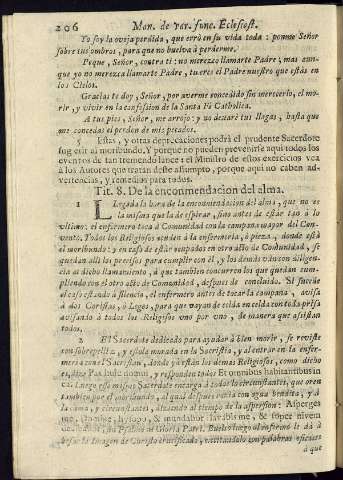 206 Man. de var. func. Eclesiast.
Yo soy la oveja perdida, que errò en su vida toda: ponme Señor
sobre tus ombros, para que no buelva à perderme.
Peque, Señor, contra ti: no merezco llamarte Padre; mas aun-
que yo no merezca llamarte Padre, tu eres el Padre nuestro que estàs en
los Cielos.
Gracias te doy, Señor, por averme concedido sin merecerlo, el mo-
rir, y vivir en la confession de la Santa Fè Catholica.
A tus pies, Señor, me arrojo: y no dexarè tus llagas, hasta que
me concedas el perdon de mis pecados.
5 Estas, y otras deprecaciones podrà el prudente Sacerdote
sugerir al moribundo. Y porque no pueden prevenirse aqui todos los
eventos de tan tremendo lance: el Ministro de estos exercicios vea
à los Autores que tratan deste assumpto, porque aqui no caben ad-
vertencias, y remedios para todos.
Tit. 8. De la encommendacion del alma.
1 Llegada la hora de la encommendacion del alma, que no es
la misma que la de espirar, sino antes de estar tan à lo
ultimo: el enfermero toca à Comunidad con la campana mayor del Con-
vento. Todos los Religiosos acuden à la enfermeria, ò pieza, donde està
el moribundo: y en caso de estàr ocupados en otro acto de Comunidad, se
quedan alli los precisos para cumplir con el, y los demàs vàn con diligen-
cia al dicho llamamiento, à que tambien concurren los que quedan cum-
pliendo con el otro acto de Comunidad, despues de concluido. Si sucede
el caso estando à silencio, el enfermero antes de tocar la campana, avisa
à dos Coristas, ò Legos, para que vayan de celda en celda con toda prisa
avisando à todos los Religiosos uno por uno, de manera que assistan
todos.
2 El Sacerdote dedicado para ayudar à bien morir, se reviste
con sobrepelliz, y estola morada en la Sacristia, y al entrar en la enfer-
meria con el Sacristan, donde yà estàn los demàs Religiosos, como dicho
es, dize Pax huic domui, y responden todos Et omnibus habitantibus in
ea. Luego esse mismo Sacerdote encarga à todos los circunstantes, que oren
tambien por el moribundo, al qual despues rocia con agua bendita, y à
la cama, y circunstantes, diziendo al tiempo de la aspersion: Asperges
me, Domine, hysopo, & mundabor: lavabis me, & super nivem
dealbabor, sin Psalmo ni Gloria Patri. Buelve luego al enfermo le dà à
besar la Imagen de Christo crucificado, excitandolo con palabras eficaces
à que